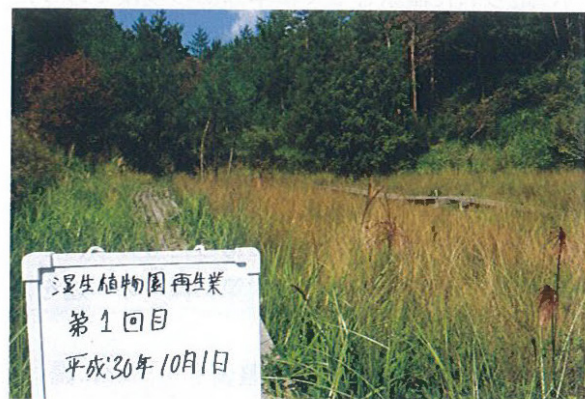 湿生植物園再生業
第1回目
平成30年10月1日